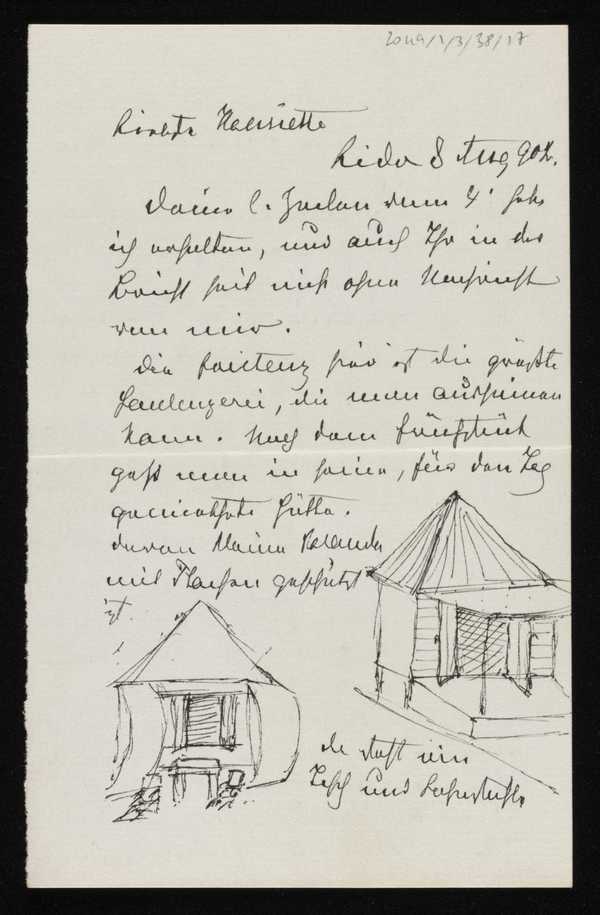 2049/1/3/38/17
Liebste Henriette
Lido 8 Aug 902.
Deine l. Zeilen vom 4ᵗ habe
ich erhalten, und auch Ihr in der
seid nicht ohne Nachricht
von mir.
Die Existenz hier ist die größte
Faulenzerei, die man aussinnen
kann. Nach dem Frühstück
geht man in seine, für den Tag
gemiethete Hütte.
davon kleine Veranda
mit Plachen geschützt
ist.
da steht ein
Tisch und Lehnstuhl